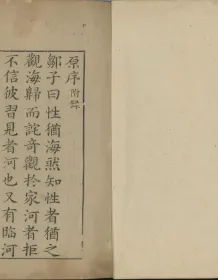 原序附録
鄒子曰性猶海然知性者猶之
觀海歸而詫奇觀於家河者拒
不信彼習見者河也又有臨河